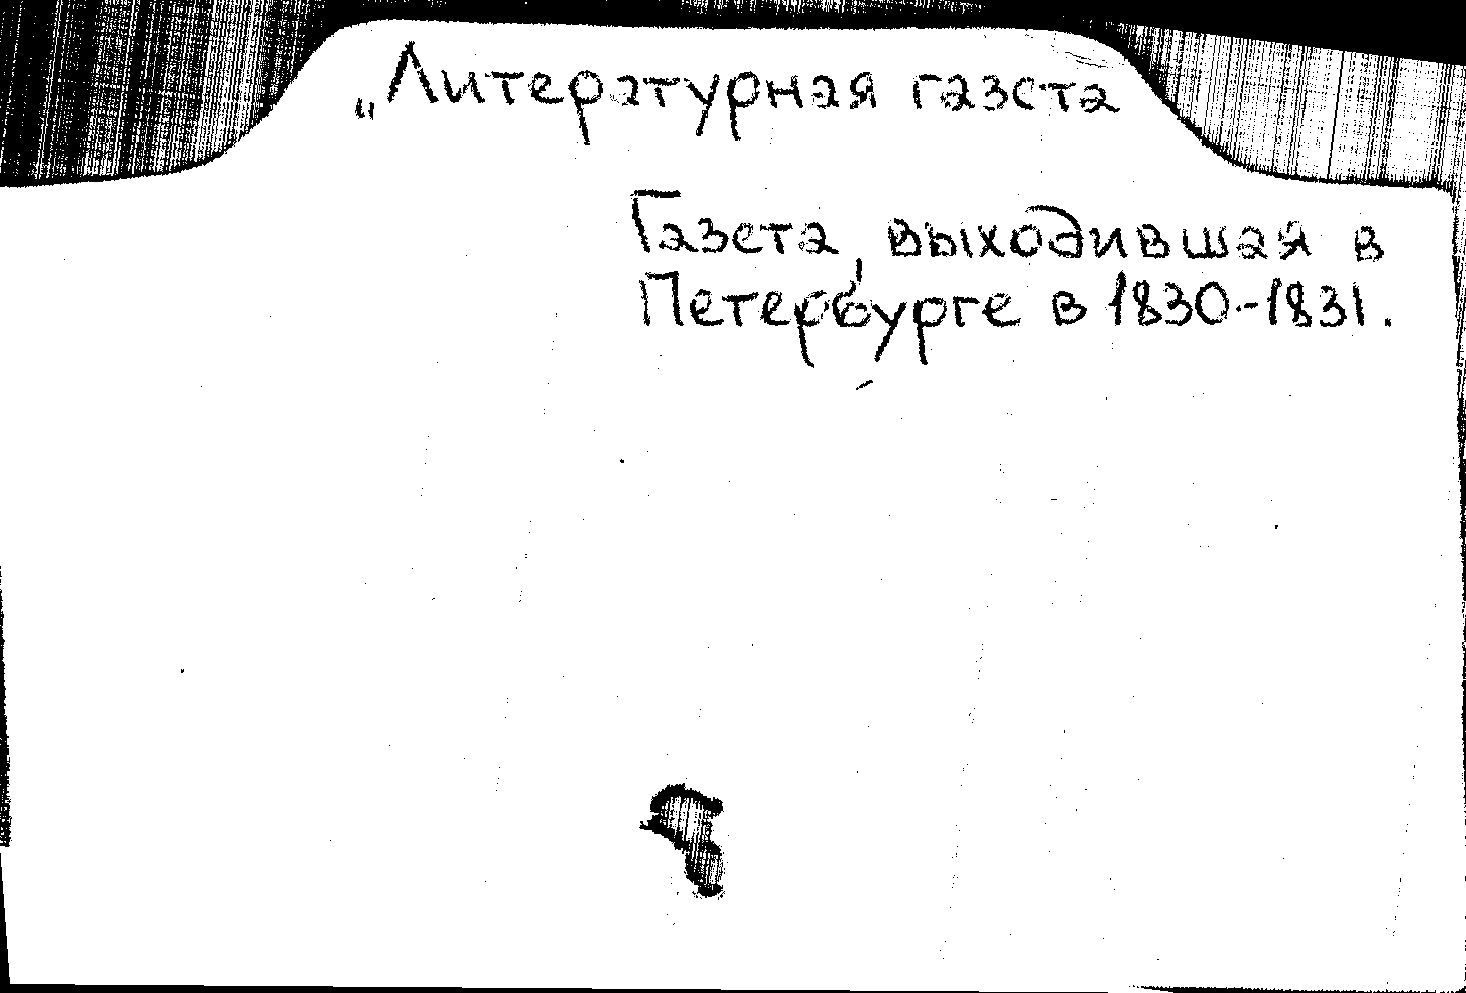 „Литературная газета
Газета, выходившая в
Петербурге в 1830-1831.